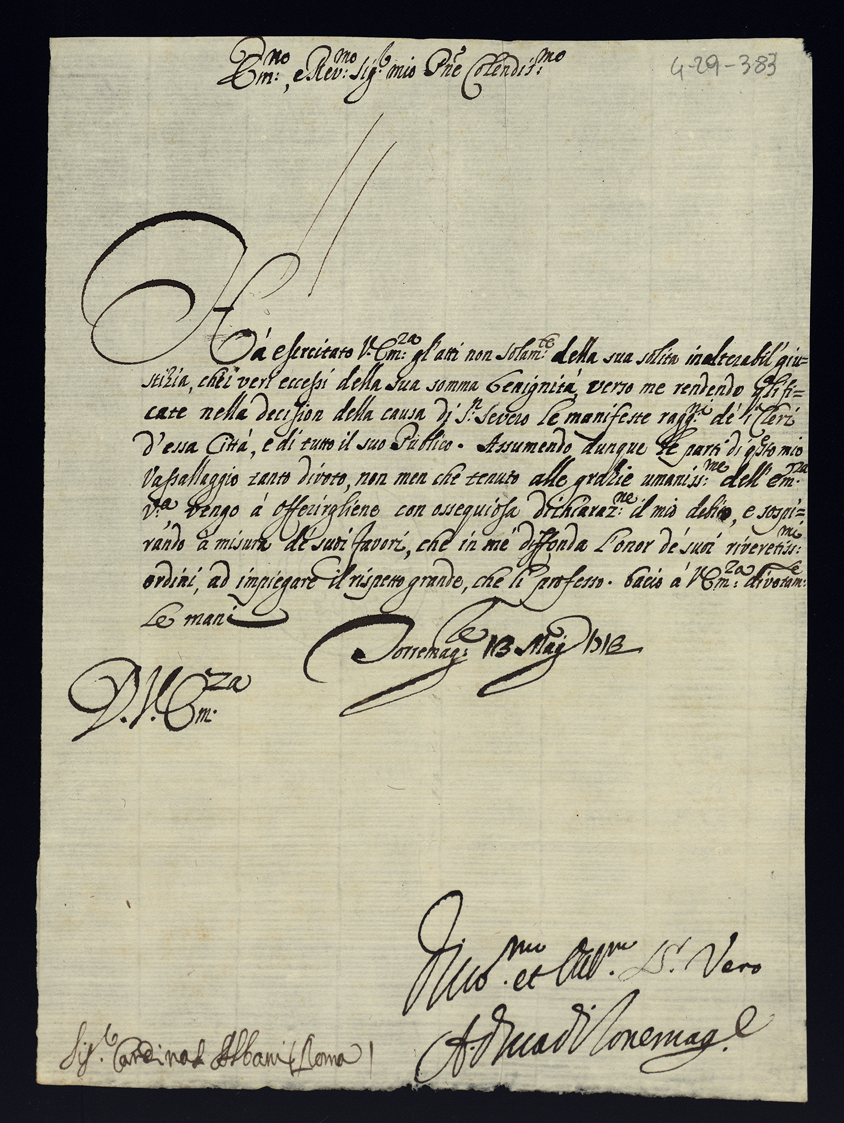 Em:mo, e Rev:mo Sig:r mio Pne Colendis:mo
4-29-383
Há esercitato V: Em:za gl'atti non solam:te della sua solita inalterabil' giu=
stizia, che i veri eccessi della sua somma benignitá, verso me rendendo
cate nella decision della causa di S:n Severo le manifeste ragg:ni de'
d'essa Cittá, e di tutto il suo Publico. Assumendo dunque le parti di qsto mio
Vassallaggio tanto divoto, non men che tenuto alle grazie umaniss:me dell'em:za
V:a vengo á offerirgliene con ossequiosa dichiaraz:ne il mio debito, e sospi=
rando á misura de suoi favori, che in me diffonda l'onor de suoi riveretiss:mi
ordini, ad impiegare il rispetto grande, che li professo. bacio á V: Em:za divotam:te
le mani
Torremag:e 13 Mag 1713
D. V. Em:za
Vero
Sig:r Cardinal Albani Roma